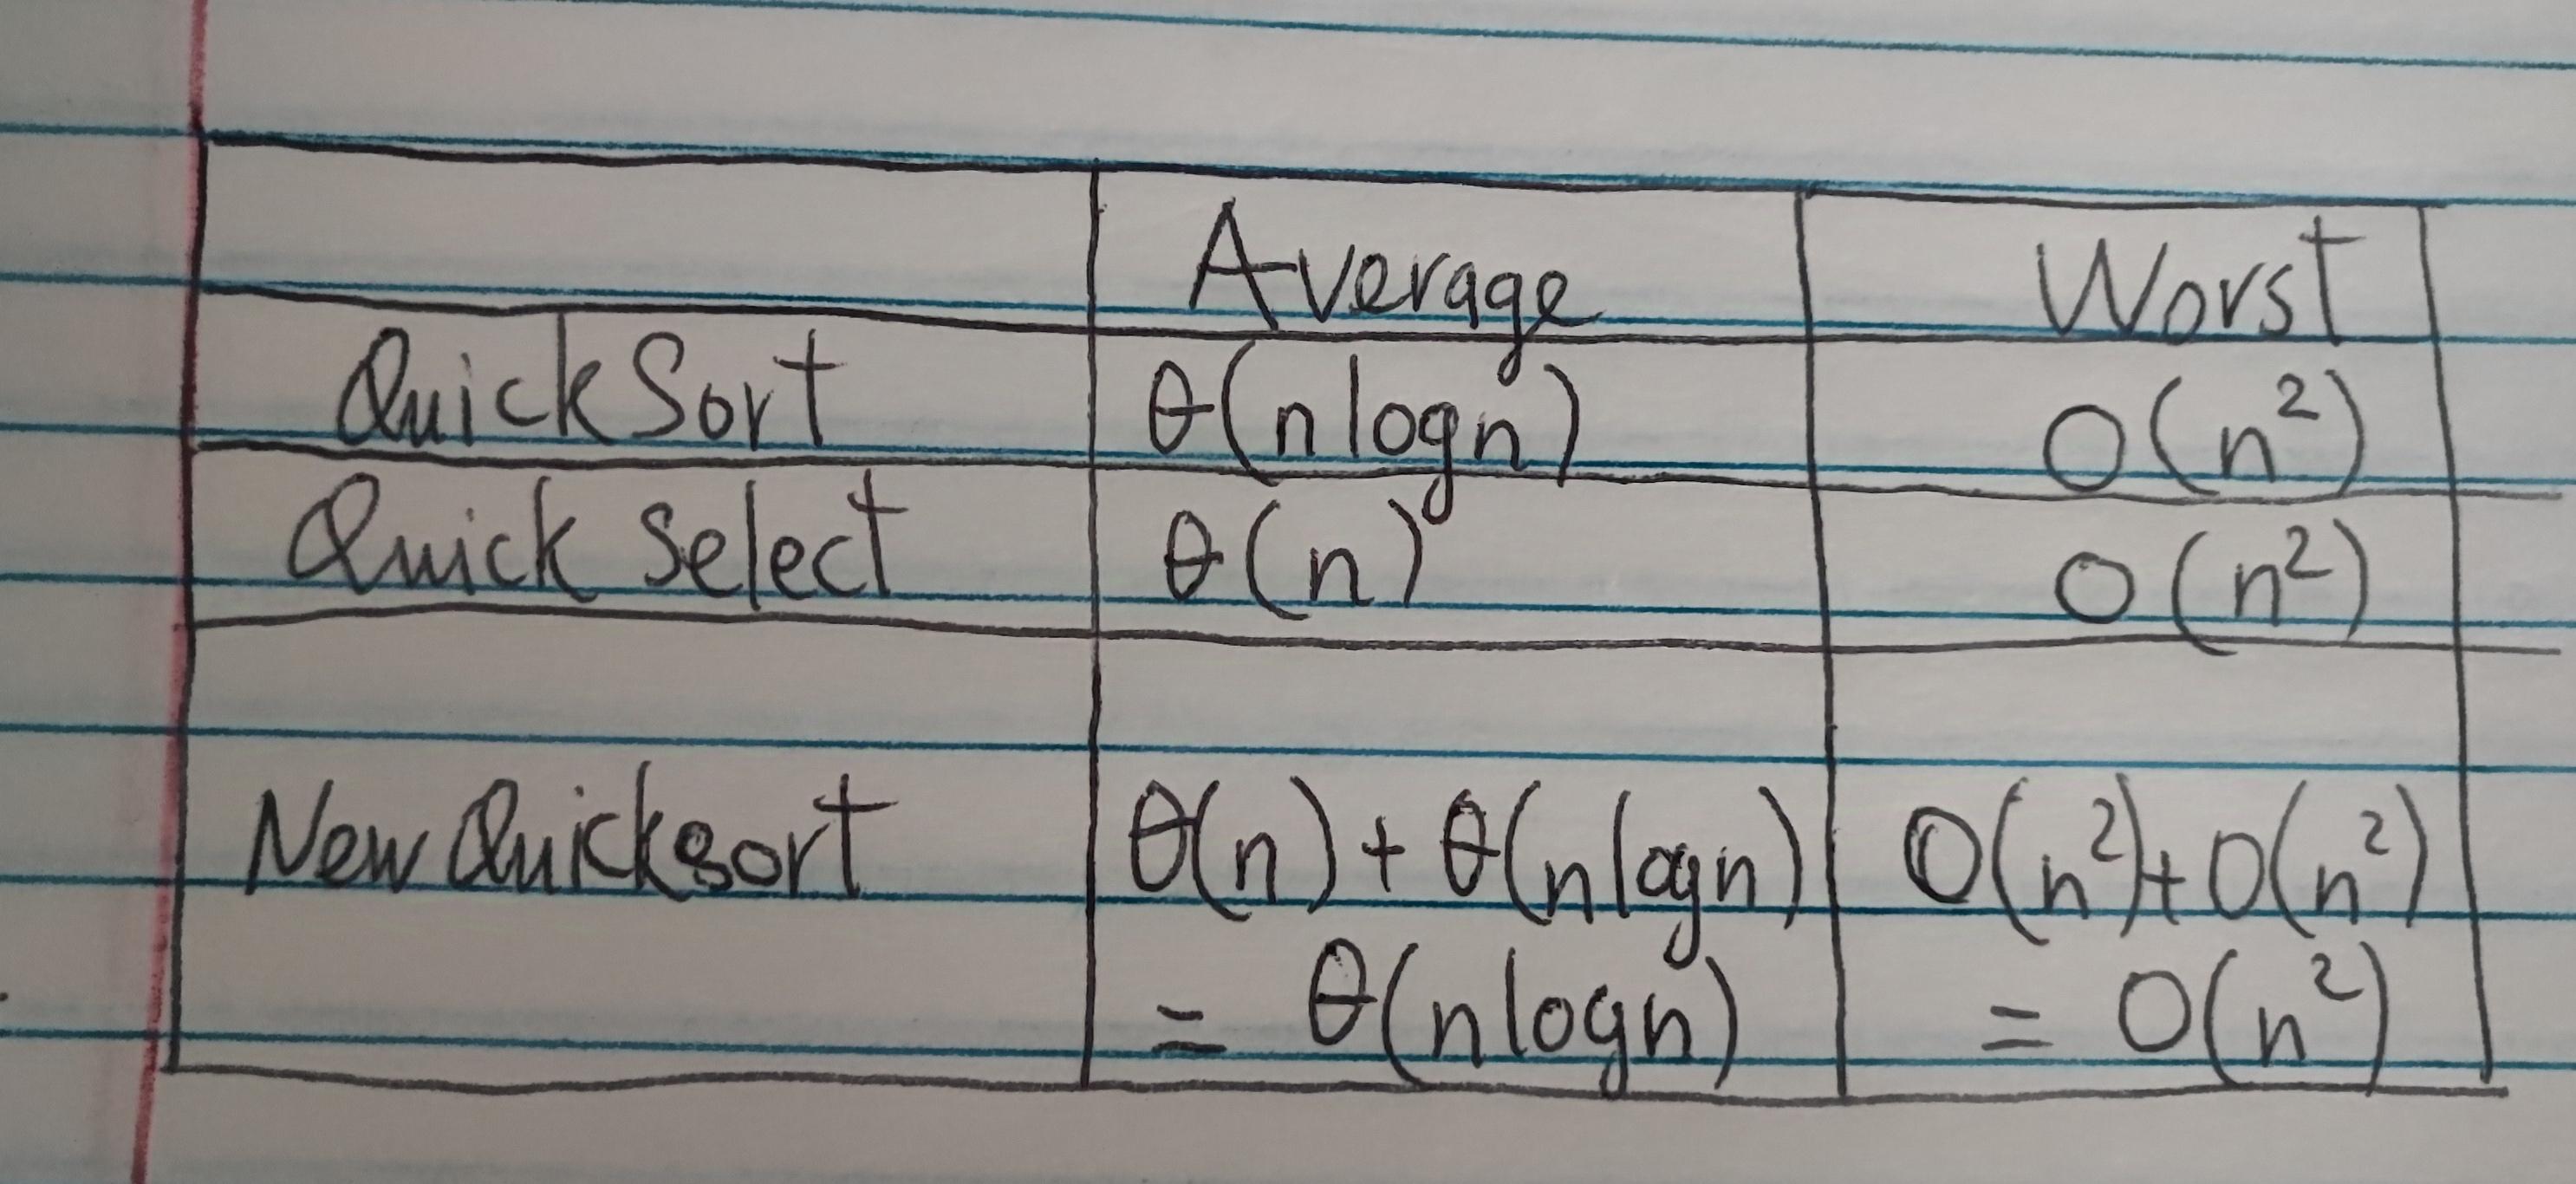 Average Worst
QuickSort θ(n logn) O(n²)
Quick Select θ(n) O(n²)
New Quicksort θ(n) + θ(n logn) O(n²)+O(n²)
= θ(n logn) = O(n²)